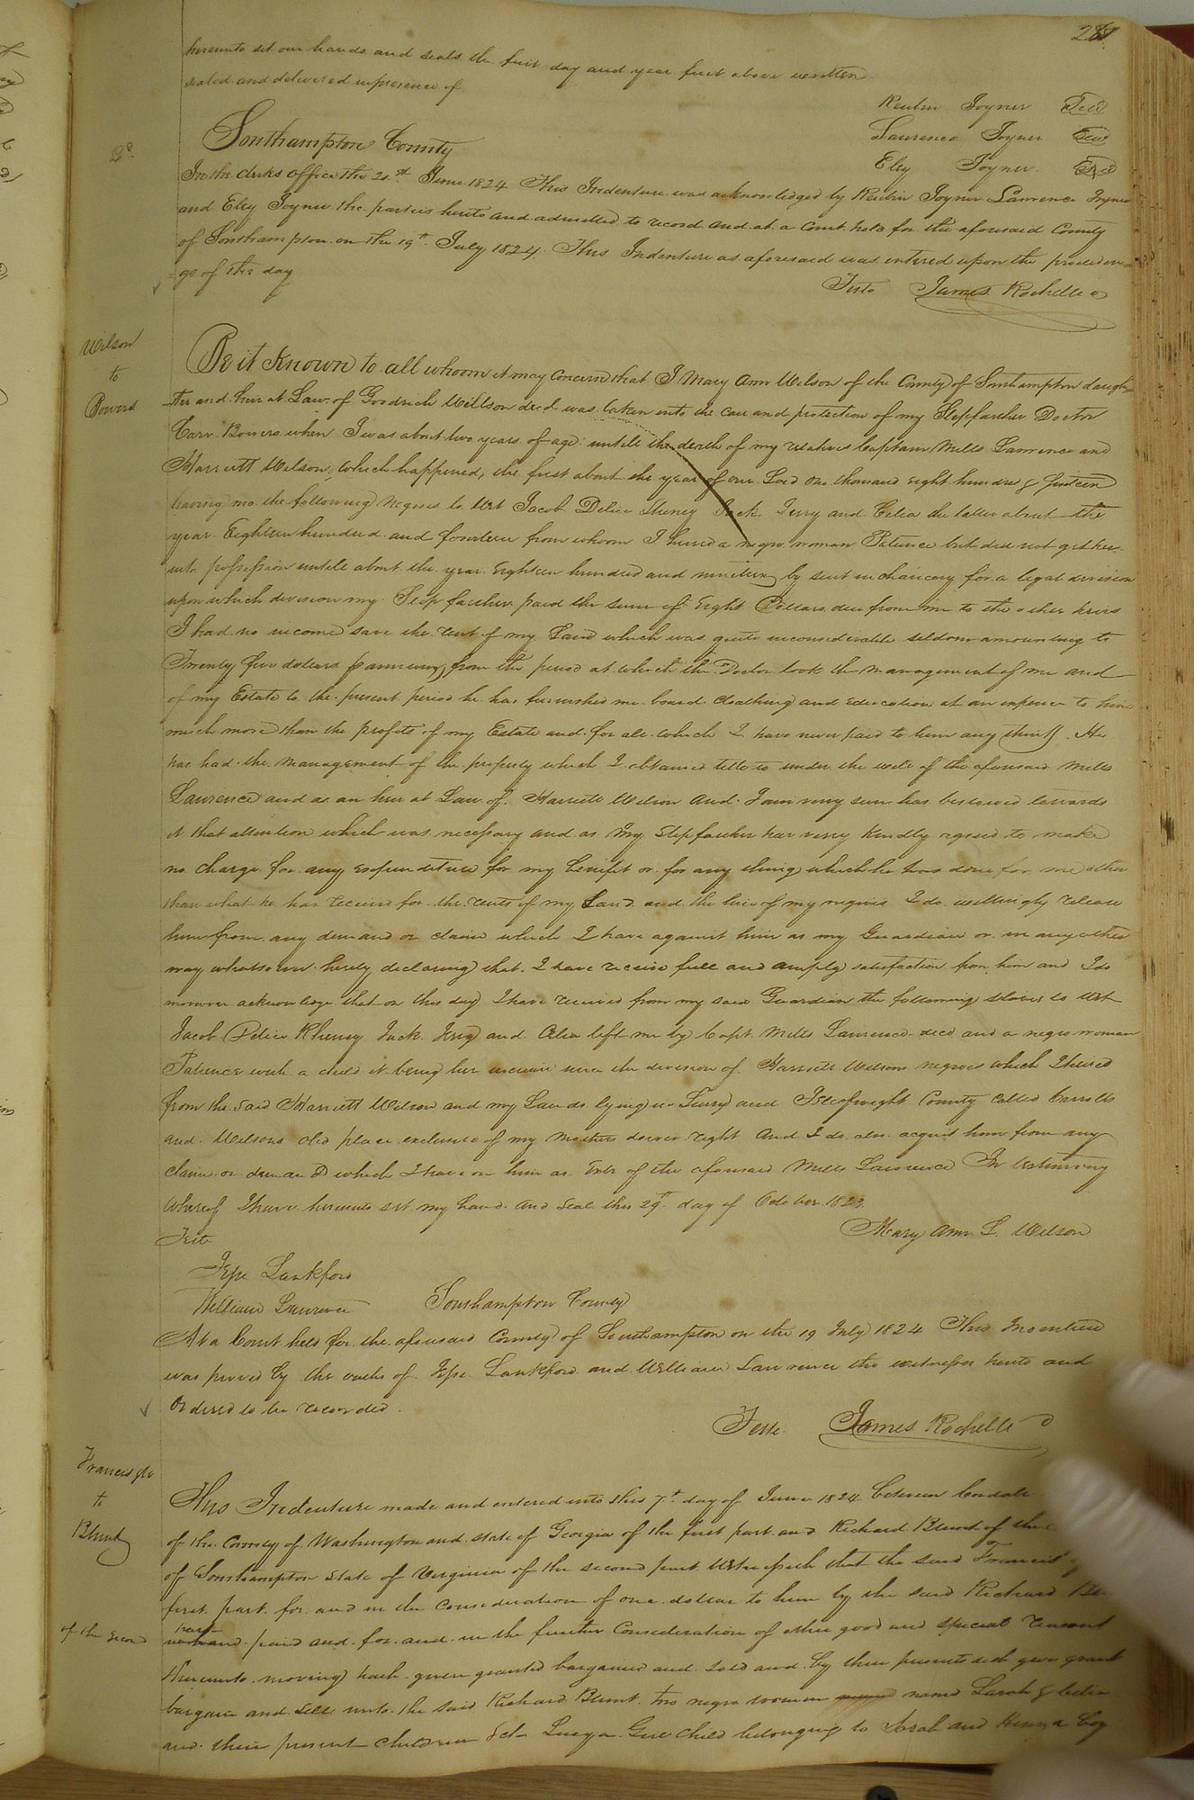 281
hereunto set our hands and seals the first day and year first above written
sealed and delivered in presence of
Reubin Joyner Seal
Lawrence Joyner Seal
Eley Joyner Seal
Southampton County
In the clerks office the 21st June 1824 This Indenture was acknowledged by Reubin Joyner Lawrence Joyner
and Eley Joyner the parties hereto and admitted to record and at a Court held for the aforesaid County
of Southampton on the 19th July 1824. This Indenture as aforesaid was entered upon the proceedin
gs of the day
Teste James Rochelle
Wilson
to
Bowers
Be it Known to all whoom it may concern that I Mary Ann Wilson of the County of Southampton daugh
ter and heir at Law of Goodrich Willson decd was taken into the care and protection of my Stepfarther Doctor
Carr Bowers when I was about two years of age untill the death of my relatives Captain Mills Lawrence and
Harriett Wilson, which happened, the first about the year of our Lord one thousand eight hundred & fifteen
leaving me the following Negroes to Wit Jacob Jack Jerry and Celia the latter about the
year Eighteen hundred and fourteen from whom I heired a negro woman Patience but did not get her
into possession untill about the year Eighteen hundred and nineteen by suit in chancery for a legal division
upon which division my Step farther paid the sum of Eight Dollars due from me to the other heirs
I had no income save the rent of my Land which was quite inconsiderable seldom amounting to
Twenty five dollars pannum, from the period at which the Doctor took the management of me and
of my Estate to the present period he has furnished me board cloathing and education at an expence to him
much more than the profits of my Estate and for all which I have never paid to him any thing. He
has had the management of the property which I obtained title to under the will of the aforesaid Mills
Lawrence and as an heir at Law of Harriett Wilson and I am very sure has bestowed towards
it that attention which was necessary and as my Stepfarther has very kindly agreed to make
no charge for any expenditure for my benefit or for any thing which he has done for me other
than what he has received for the rents of my Land and the hire of my negroes I do willingly release
him from any demand or claim which I have against him as my Guardian or in any other
way whatsoever hereby declaring that I have received full and ample satisfaction from him and I do
moreover acknowledge that on this day I have received from my said Guardian the following slaves to Wit
Jacob Jack Jerry and Celia left me by Capt Mills Lawrence decd and a negro woman
Patience with a child it being her increase since the division of Harriett Wilsons negroes which I heired
from the said Harriett Wilson and my Lands lying in Surry and Isle of wight County called Carrolls
and Wilsons old place exclusive of my mothers dower right And I do also acquit him from any
claim or demand which I have on him as Exor of the aforesaid Mills Lawrence In testimony
whereof I have hereunto set my hand and seal this 29th day of October 1823
Mary Ann L. Wilson
Teste
Jesse Lankford
William Lawrence
Southampton County
At a Court held for the aforesaid County of Southampton on the 19 July 1824 This Indenture
was proved by the oaths of Jesse Lankford and William Lawrence the witnesses hereto and
Ordered to be recorded.
Teste James Rochelle
Francis &c
to
Blunt
This Indenture made and entered into this 7th day of June 1824 between
of the County of Washington and state of Georgia of the first part and Richard Blunt of the
of Southampton State of Virginia of the second part Witnesseth that the said Francis
first part for and in the consideration of one dollar to him by the said Richard
of the second
part
in hand paid and for and in the further consideration of other good and special reasons
thereunto moving hath given granted bargained and sold and by these presents doth give grant
bargain and sell unto the said Richard Blunt two negro women named Sarah & Celia
and their present children Girl child belonging to Sarah and boy